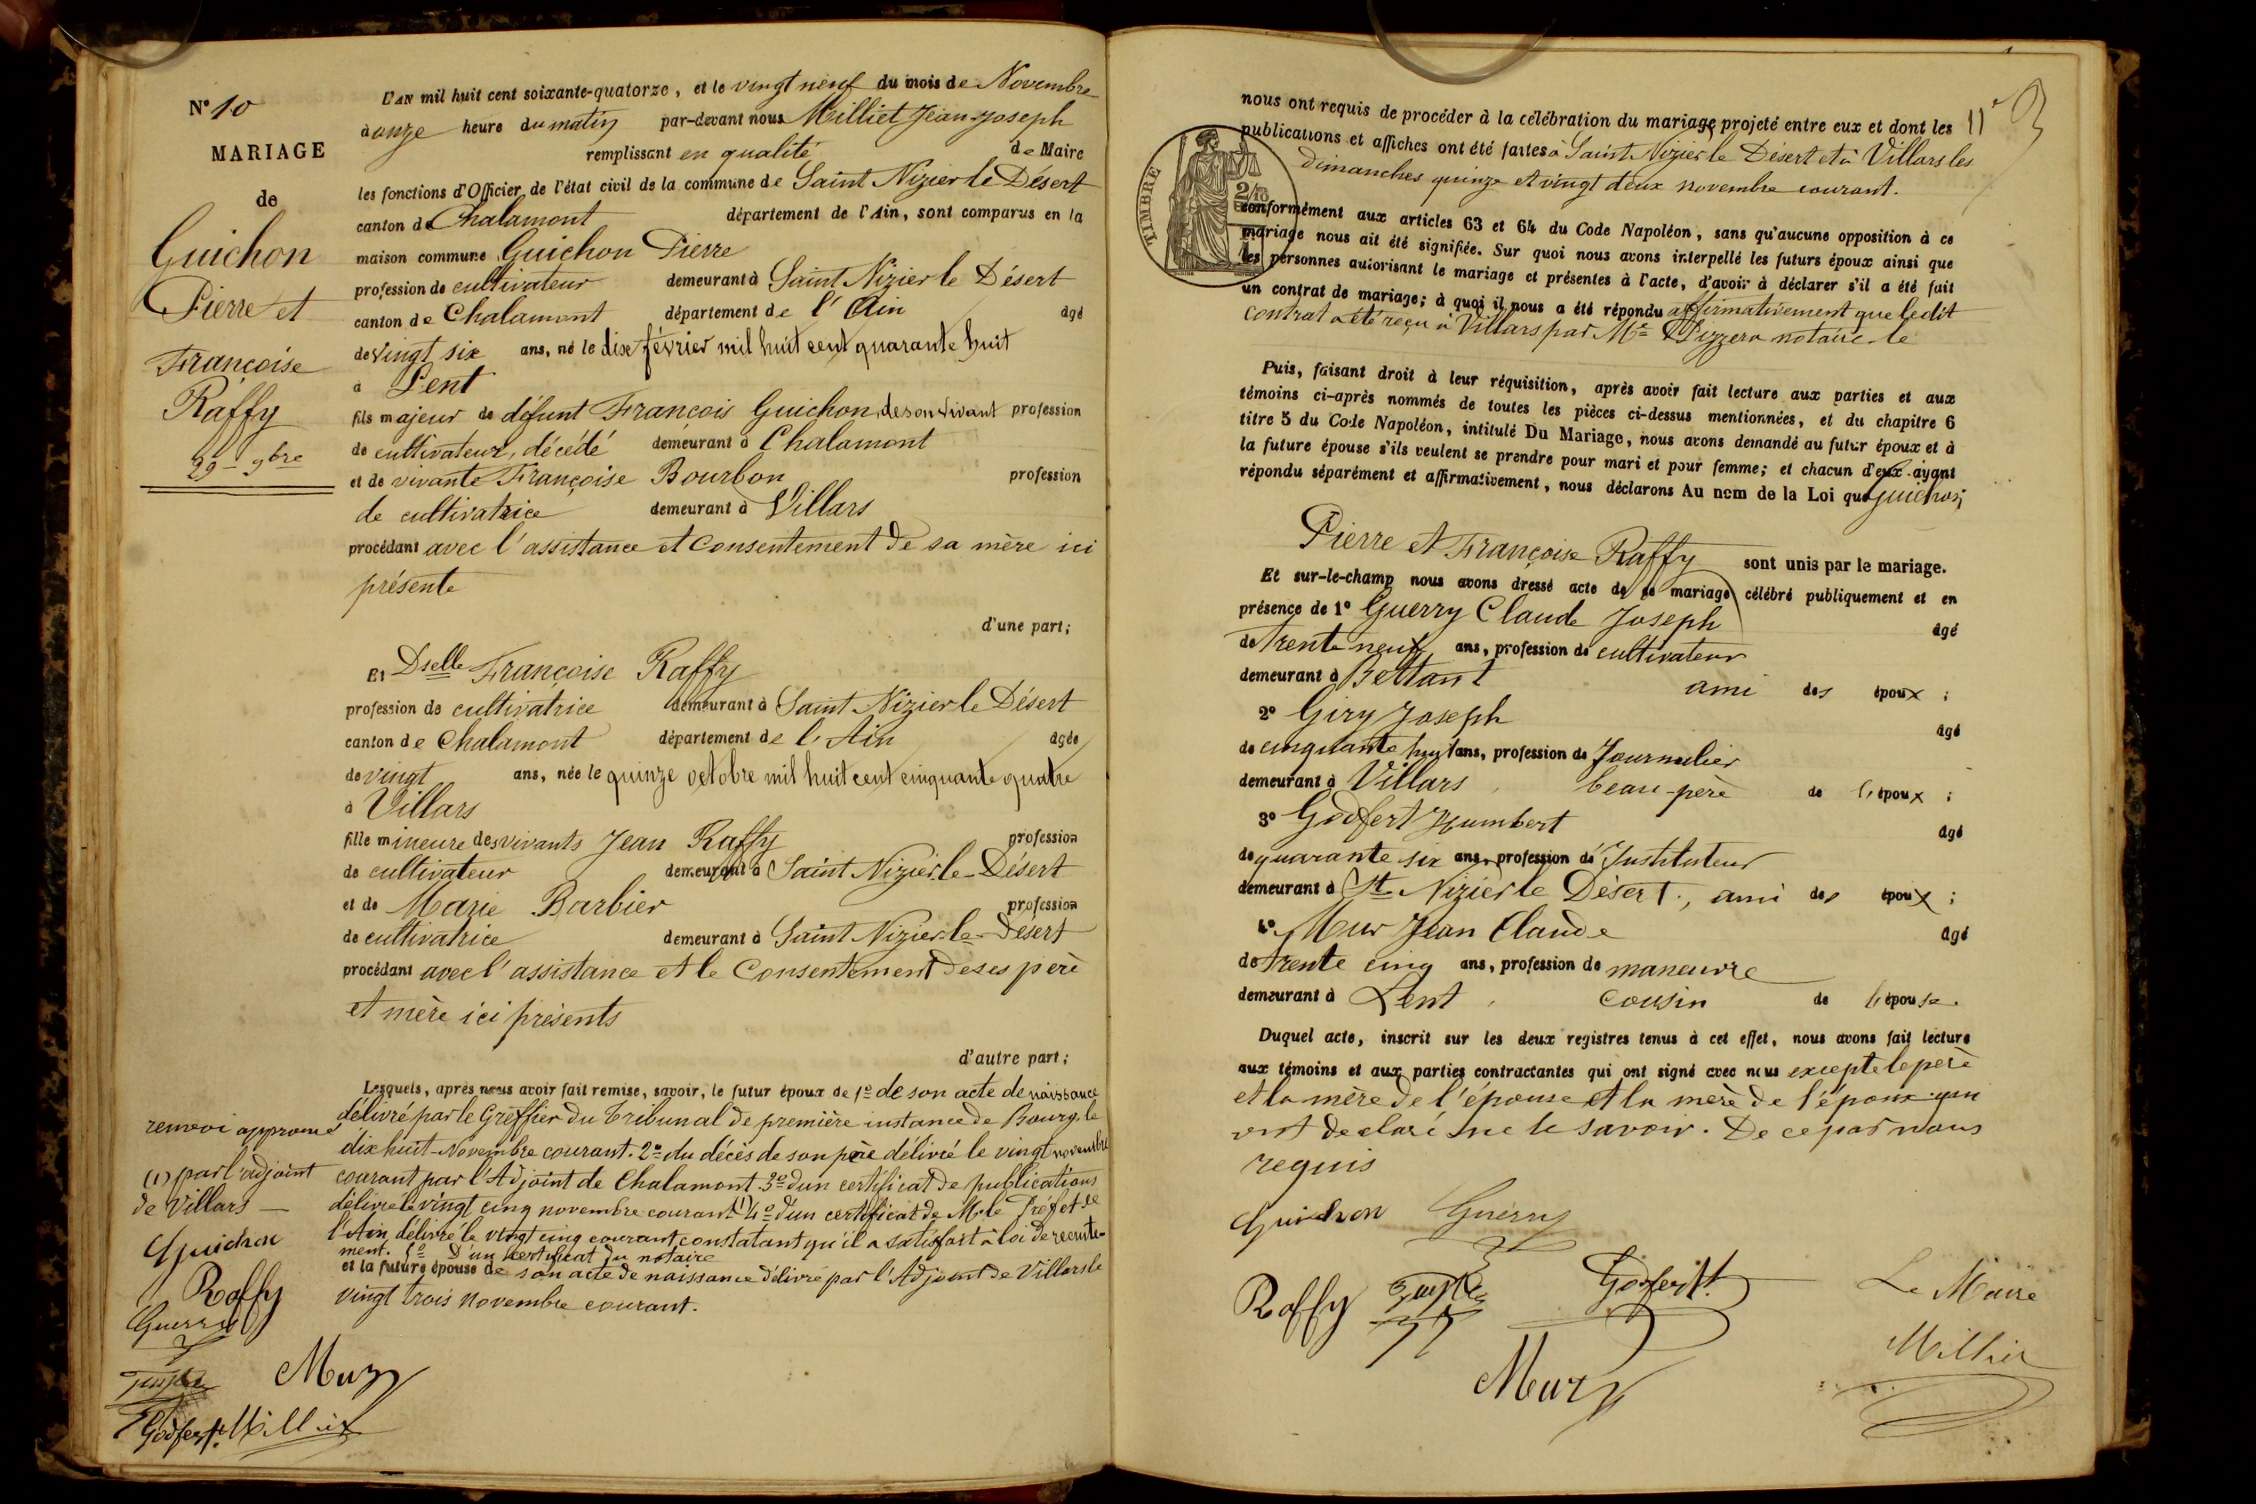 N° 10
MARIAGE
de
Guichon
Pierre et
Françoise
Raffy
29 - 9bre
L'AN mil huit cent soixante-quatorze, et le vingt neuf du mois de Novembre
à onze heure du matin par-devant nous Milliet Jean-Joseph
remplissant en qualité de Maire
les fonctions d'Officier de l'état civil de la commune de Saint Nizier le Désert
canton de Chalamont département de l'Ain, sont comparus en la
maison commune Guichon Pierre
profession de cultivateur demeurant à Saint Nizier le Désert
canton de Chalamont département de l'Ain âgé
de vingt six ans, né le dix février mil huit cent quarante huit
à Lent
fils majeur de défunt François Guichon, de son vivant profession
de cultivateur, décédé demeurant à Chalamont
et de vivante Françoise Bourbon profession
de cultivatrice demeurant à Villars
procédant avec l'assistance et consentement de sa mère ici
présente
d'une part;
Et Dselle Françoise Raffy
profession de cultivatrice demeurant à Saint Nizier le Désert
canton de Chalamont département de l'Ain âgée
de vingt ans, née le quinze octobre mil huit cent cinquante quatre
à Villars
fille mineure des vivants Jean Raffy profession
de cultivateur demeurant à Saint Nizier-le-Désert
et de Marie Barbier profession
de cultivatrice demeurant à Saint Nizier-le-Désert
procédant avec l'assistance et le Consentement de ses père
et mère ici présents
d'autre part;
Lesquels, après nous avoir fait remise, savoir, le futur époux de 1° de son acte de naissance
délivré par le Greffier du Tribunal de première instance de Bourg, le
dix huit Novembre courant. 2° du décès de son père délivré le vingt novembre
courant par l'Adjoint de Chalamont. 3° d'un certificat de publications
délivré le vingt cinq novembre courant (1) 4° d'un certificat de Mr le Préfet de
l'Ain, délivré le vingt cinq courant constatant qu'il a satisfait à loi de recrute-
ment. 5° D'un certificat du notaire
et la future épouse de son acte de naissance délivré par l'Adjoint de Villars le
vingt trois novembre courant.
renvoi approuvé
(1) par l'adjoint
de Villars
Guichon
Raffy
Guerry
Mury
Godfert. Milliet
11e
nous ont requis de procéder à la célébration du mariage projeté entre eux et dont les
publications et affiches ont été faites à Saint Nizier le Désert et à Villars les
dimanches quinze et vingt deux novembre courant.
TIMBRE
2/10
conformément aux articles 63 et 64 du Code Napoléon, sans qu'aucune opposition à ce
mariage nous ait été signifiée. Sur quoi nous avons interpellé les futurs époux ainsi que
les personnes autorisant le mariage et présentes à l'acte, d'avoir à déclarer s'il a été fait
un contrat de mariage; à quoi il nous a été répondu affirmativement que ledit
contrat a été reçu à Villars par Me notaire le
Puis, faisant droit à leur réquisition, après avoir fait lecture aux parties et aux
témoins ci-après nommés de toutes les pièces ci-dessus mentionnées, et du chapitre 6
titre 5 du Code Napoléon, intitulé Du Mariage, nous avons demandé au futur époux et à
la future épouse s'ils veulent se prendre pour mari et pour femme; et chacun d'eux ayant
répondu séparément et affirmativement, nous déclarons Au nom de la Loi que Guichon
Pierre et Françoise Raffy sont unis par le mariage.
Et sur-le-champ nous avons dressé acte de ce mariage célébré publiquement et en
présence de 1° Guerry Claude Joseph âgé
de trente neuf ans, profession de cultivateur
demeurant à Bettant ami des époux ;
2° Giry Joseph âgé
de cinquante huit ans, profession de Journalier
demeurant à Villars beau-père de l'époux ;
3° Godfert Humbert âgé
de quarante six ans, profession de Instituteur
demeurant à St Nizier le Désert, ami des époux ;
4° Mur Jean Claude âgé
de trente cinq ans, profession de maneuvre
demeurant à Lent, cousin de l'épouse.
Duquel acte, inscrit sur les deux registres tenus à cet effet, nous avons fait lecture
aux témoins et aux parties contractantes qui ont signé avec nous excepté le père
et la mère de l'épouse et la mère de l'époux qui
ont déclaré ne le savoir. De ce par nous
requis
Guichon Guerry
Raffy Godfert.
Le Maire
Milliet
Mury